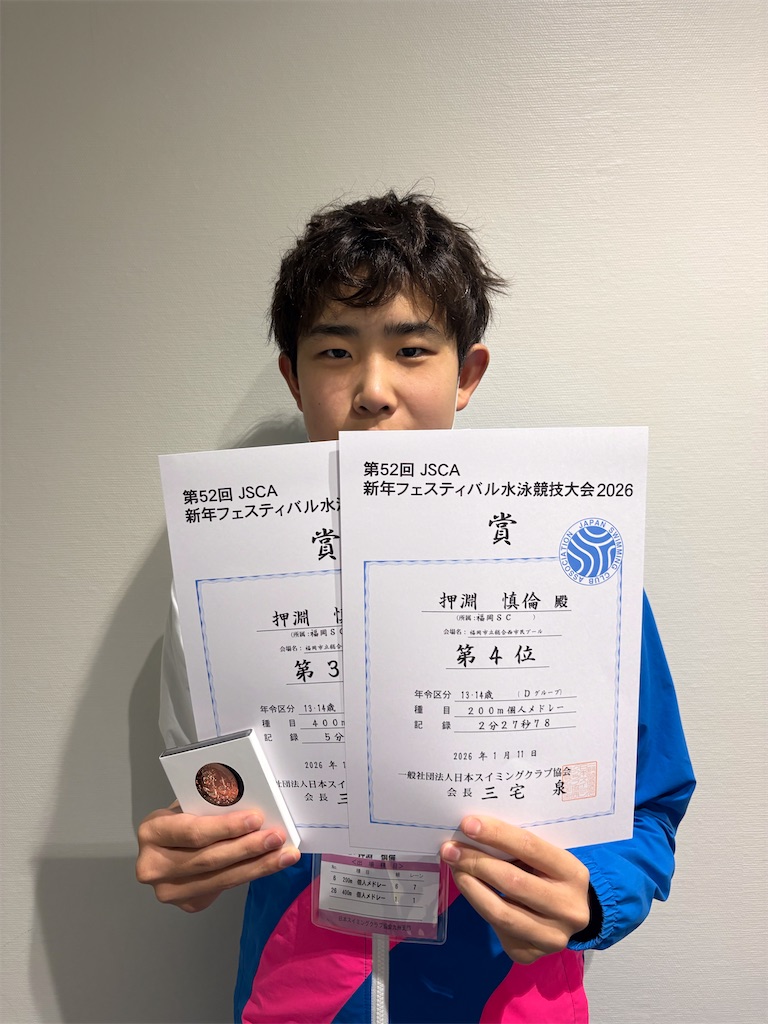 第52回 JSCA
新年フェスティバル水
賞
押淵 慎
(所属:福岡SC
会場名: 福岡市立総合
第3
年令区分 13-14歳
種 目 400m
記 録 5分
2026 年 1
社団法人日本スイミン
会 長 三
第52回 JSCA
新年フェスティバル水泳競技大会2026
賞
JAPAN SWIMMING CLUB ASSOCIATION
押淵 慎倫 殿
(所属:福岡SC )
会場名: 福岡市立総合西市民プール
第4位
年令区分 13-14歳 (Dグループ)
種 目 200m個人メドレー
記 録 2分27秒78
2026 年 1 月 11 日
一般社団法人日本スイミングクラブ協会
会 長 三宅 泉
押淵 慎倫
No. 種目 組 レーン
200m 個人メドレー 7
400m 個人メドレー 1